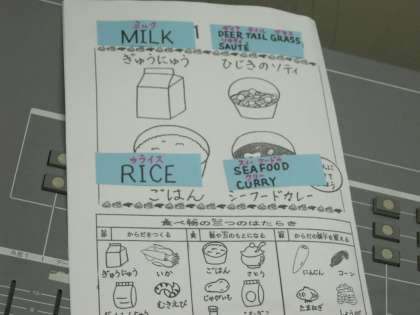 ミルク
MILK
1
ディア テイル グラス
DEER TAIL GRASS
ソウティ
SAUTÉ
ぎゅうにゅう
ひじきのソティ
ライス
RICE
シィーフードゥ
SEAFOOD
カリー
CURRY
ごはん
シーフードカレー
食べ物の三つのはたらき
からだをつくる
熱や力のもとになる
からだの調子を整える
ぎゅうにゅう
いか
ごはん
さとう
にんじん
コーン
むきえび
じゃがいも
たまねぎ
しょうが